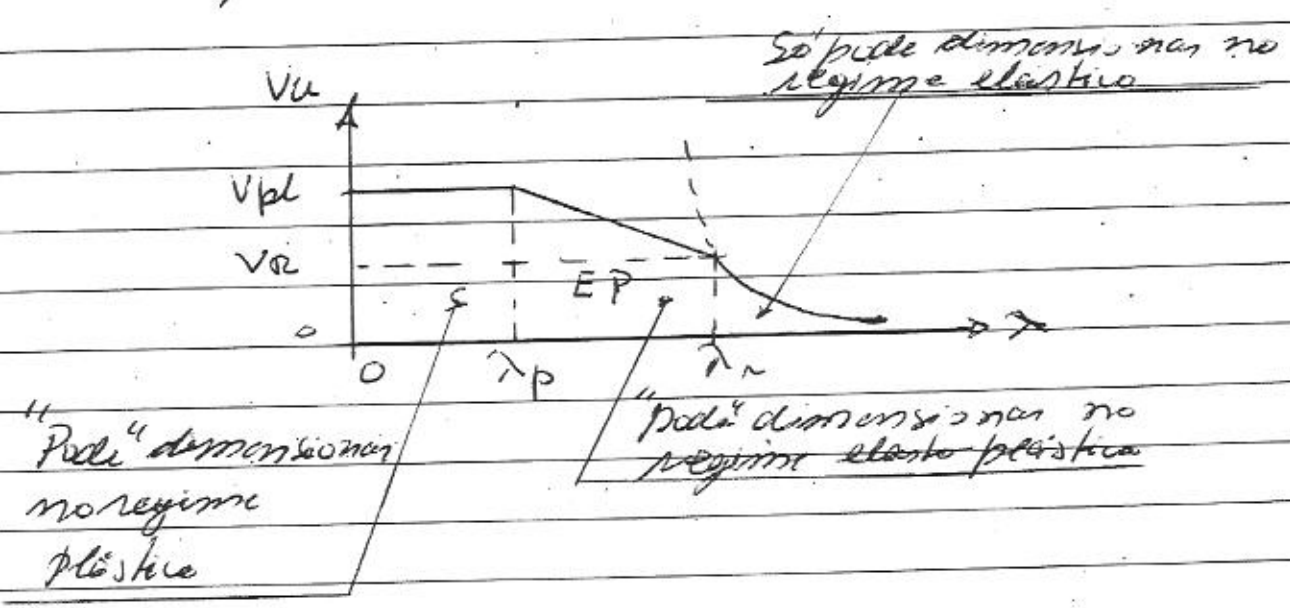 "Só" pode dimensionar no
regime elástico
Vu
Vpl
Vr
EP
0
0
λp
λr
λ
"Pode" dimensionar
no regime
plástico
"Pode" dimensionar no
regime elasto plástico